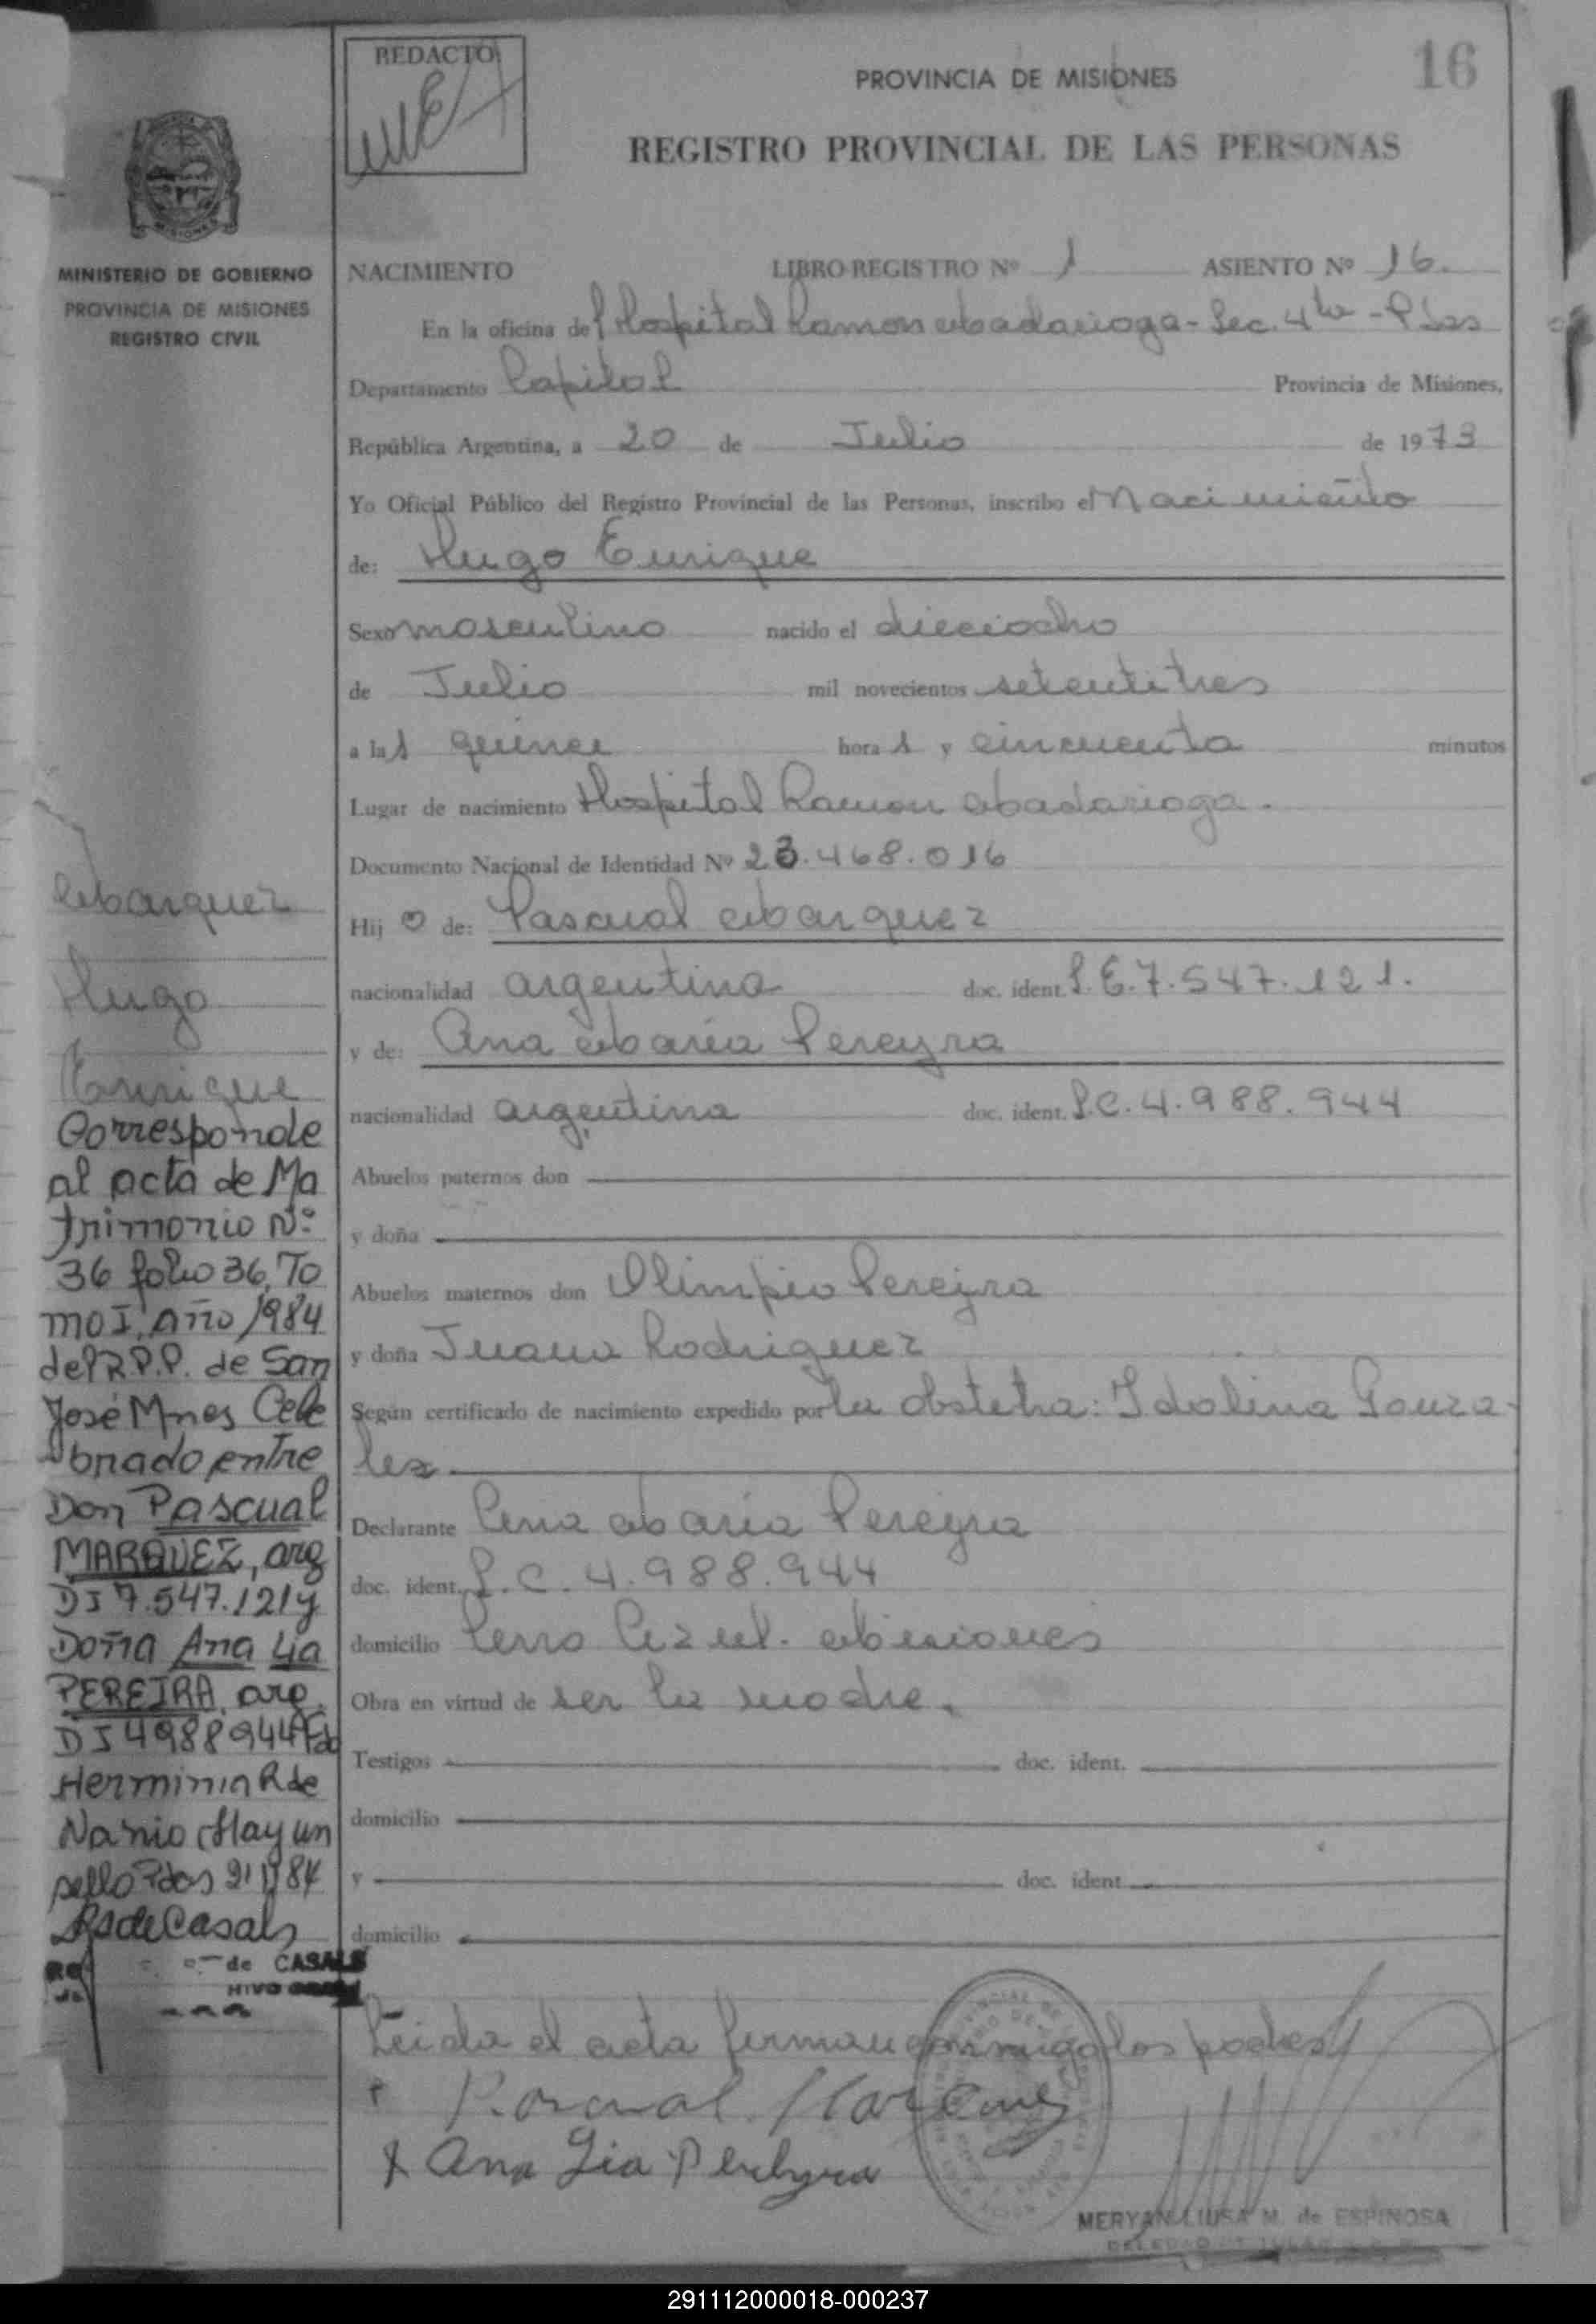 REDACTO
16
PROVINCIA DE MISIONES
REGISTRO PROVINCIAL DE LAS PERSONAS
MINISTERIO DE GOBIERNO
PROVINCIA DE MISIONES
REGISTRO CIVIL
NACIMIENTO LIBRO REGISTRO Nº 1 ASIENTO Nº 16.
En la oficina del Hospital Ramon Madariaga - Sec. 4ta - Pdas
Departamento Capital Provincia de Misiones,
República Argentina, a 20 de Julio de 1973
Yo Oficial Público del Registro Provincial de las Personas, inscribo el Nacimiento
de: Hugo Enrique
Sexo masculino nacido el dieciocho
de Julio mil novecientos setentitres
a las quince horas y cincuenta minutos
Lugar de nacimiento Hospital Ramon Madariaga.
Documento Nacional de Identidad Nº 23.468.016
Hijo de: Pascual Marquez
nacionalidad argentina doc. ident. L.E. 7.547.121.
y de: Ana Maria Pereyra
nacionalidad argentina doc. ident. L.C. 4.988.944
Abuelos paternos don
y doña
Abuelos maternos don Olimpio Pereyra
y doña Juana Rodriguez
Según certificado de nacimiento expedido por la obstetra: Idolina Gonza-
lez
Declarante Ana Maria Pereyra
doc. ident. L.C. 4.988.944
domicilio Cerro Azul. Misiones
Obra en virtud de ser la madre.
Testigos doc. ident.
domicilio
y doc. ident.
domicilio
Leida el acta firman conmigo los padres
Pascual Marquez
x Ana Lia Pereyra
MERYAN LIUSA M. de ESPINOSA
Marquez
Hugo
Enrique
Corresponde
al acta de Ma
trimonio Nº
36 folio 36, To
mo I, Año 1984
del R.P.P. de San
José Mnes Cele
brado entre
Don Pascual
MARQUEZ, arg
DI 7.547.121 y
Doña Ana Lia
PEREIRA, arg.
DI 4988944 Fdo
Herminia R de
Nanio (Hay un
sello Pdas
R S de Casals
de CASALS
291112000018-000237